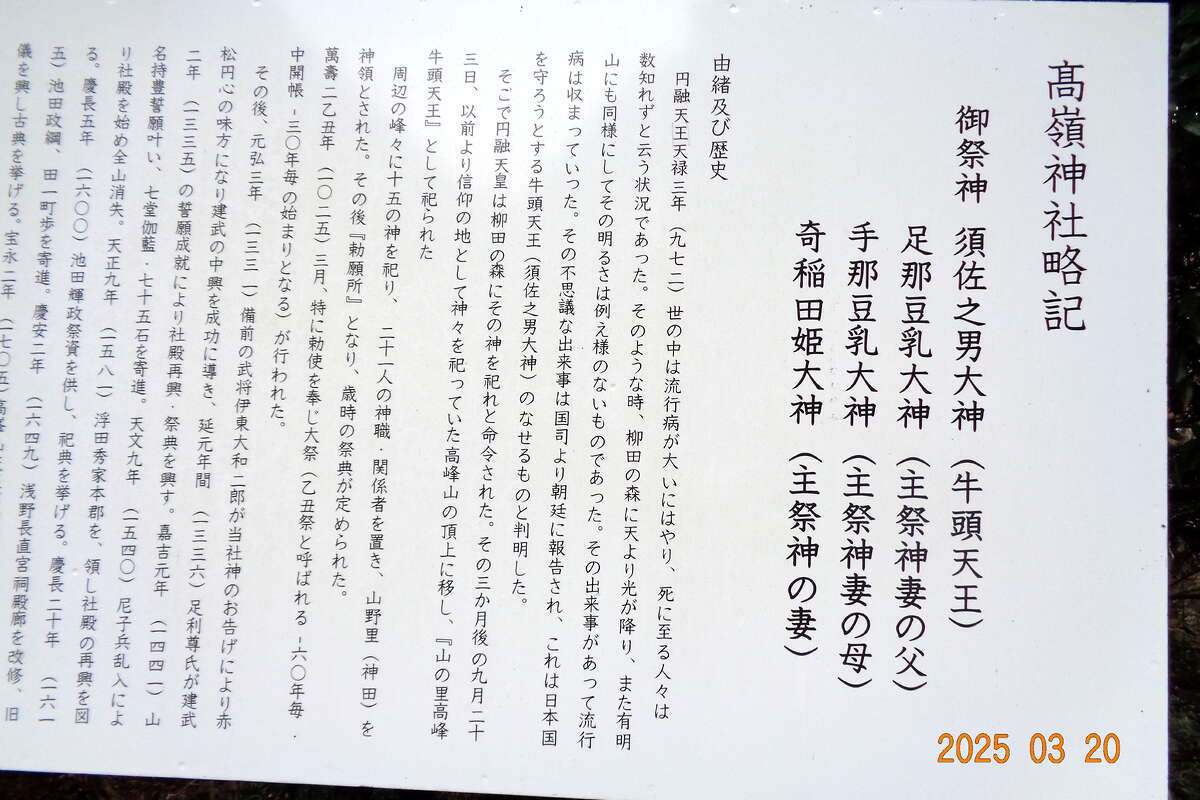 高嶺神社略記
御祭神 須佐之男大神(牛頭天王)
足那豆乳大神(主祭神妻の父)
手那豆乳大神(主祭神妻の母)
奇稲田姫大神(主祭神の妻)
由緒及び歴史
円融天王天禄三年(九七二)世の中は流行病が大いにはやり、死に至る人々は
数知れずと云う状況であった。そのような時、柳田の森に天より光が降り、また有明
山にも同様にしてその明るさは例え様のないものであった。その出来事があって流行
病は収まっていった。その不思議な出来事は国司より朝廷に報告され、これは日本国
を守ろうとする牛頭天王(須佐之男大神)のなせるものと判明した。
そこで円融天皇は柳田の森にその神を祀れと命令された。その三か月後の九月二十
三日、以前より信仰の地として神々を祀っていた高峰山の頂上に移し、『山の里高峰
牛頭天王』として祀られた
周辺の峰々に十五の神を祀り、二十一人の神職・関係者を置き、山野里(神田)を
神領とされた。その後『勅願所』となり、歳時の祭典が定められた。
萬壽二乙丑年(一〇二五)三月、特に勅使を奉じ大祭(乙丑祭と呼ばれる-六〇年毎・
中開帳-三〇年毎の始まりとなる)が行われた。
その後、元弘三年(一三三一)備前の武将伊東大和二郎が当社神のお告げにより赤
松円心の味方になり建武の中興を成功に導き、延元年間(一三三六)足利尊氏が建武
二年(一三三五)の誓願成就により社殿再興・祭典を興す。嘉吉元年(一四四一)山
名持豊誓願叶い、七堂伽藍・七十五石を寄進。天文九年(一五四〇)尼子兵乱入によ
り社殿を始め全山消失。天正九年(一五八一)浮田秀家本郡を、領し社殿の再興を図
る。慶長五年(一六〇〇)池田輝政祭資を供し、祀典を挙げる。慶長二十年(一六一
五)池田政綱、田一町歩を寄進。慶安二年(一六四九)浅野長直宮祠殿廊を改修、旧
儀を興し古典を挙げる。宝永二年(一七〇五)高
2025 03 20